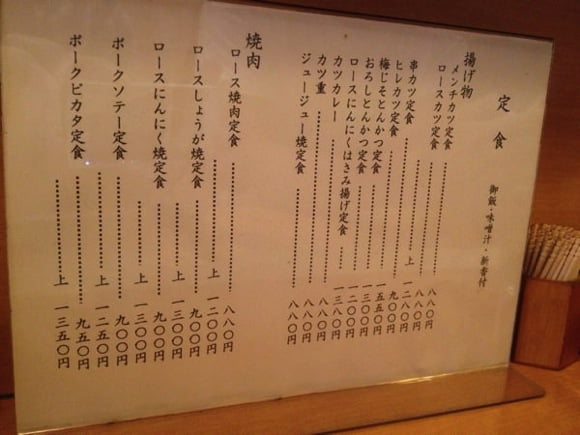 定食
御飯・味噌汁・新香付
揚げ物
メンチカツ定食 八八〇円
ロースカツ定食 八八〇円
上 一二八〇円
串カツ定食 九〇〇円
ヒレカツ定食 一五五〇円
梅じそとんかつ定食 一三〇〇円
おろしとんかつ定食 一二〇〇円
ロースにんにくはさみ揚げ定食 一三八〇円
カツカレー 八八〇円
カツ重 八八〇円
ジュージュー焼定食 八八〇円
焼肉
ロース焼肉定食 八八〇円
上 一二〇〇円
ロースしょうが焼定食 九〇〇円
上 一三〇〇円
ロースにんにく焼定食 九〇〇円
上 一三〇〇円
ポークソテー定食 九〇〇円
上 一二五〇円
ポークピカタ定食 九五〇円
上 一三五〇円